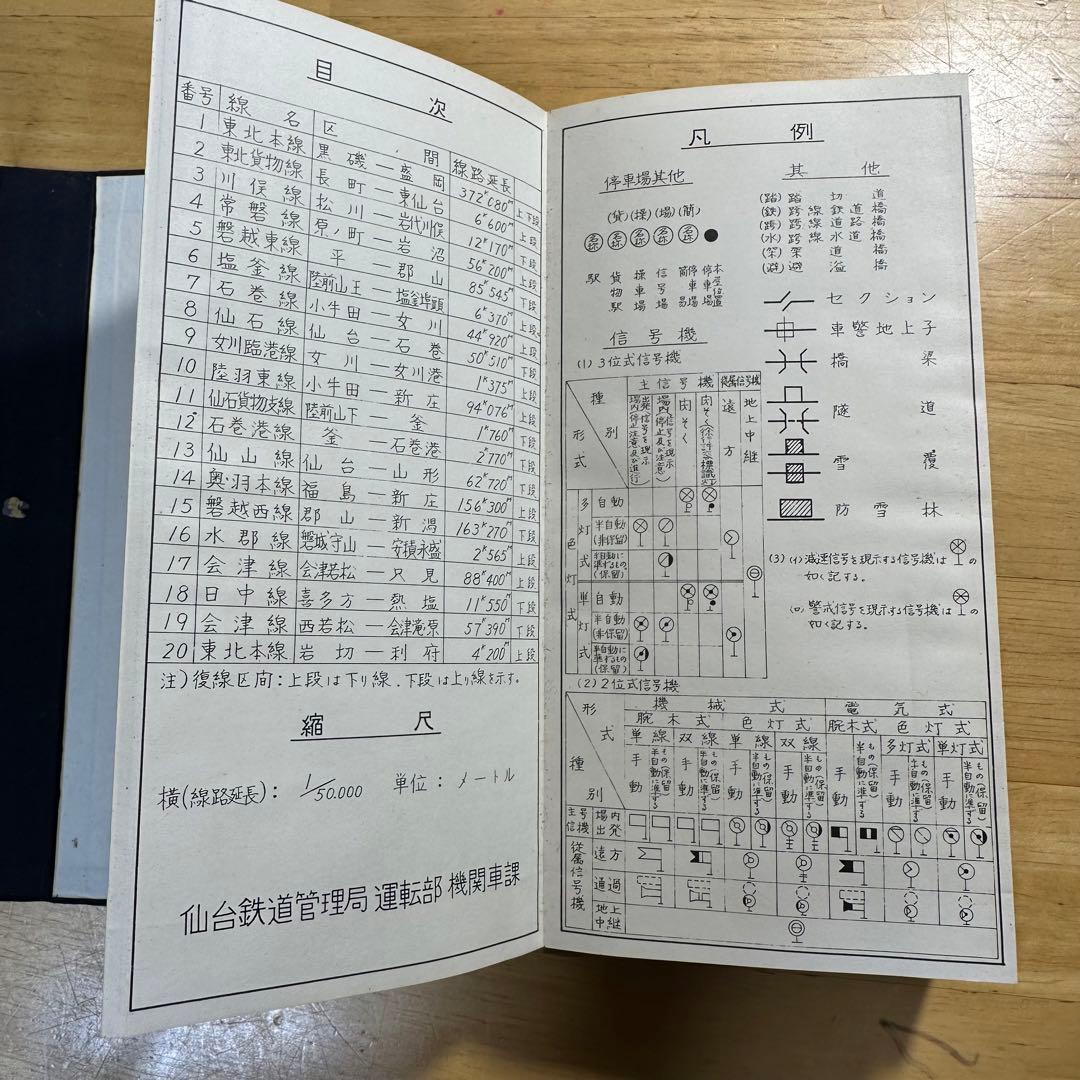 目次
番号 線名 区間 線路延長
1 東北本線 黒磯―盛岡 372K080M 上下段
2 東北貨物線 長町―東仙台 6K600M 上段
3 川俣線 松川―岩代川俣 12K170M 上段
4 常磐線 原ノ町―岩沼 56K200M 下段
5 磐越東線 平―郡山 85K545M 上段
6 塩釜線 陸前山王―塩釜埠頭 6K370M 下段
7 石巻線 小牛田―女川 44K920M 上段
8 仙石線 仙台―石巻 50K510M 上段
9 女川臨港線 女川―女川港 1K375M 下段
10 陸羽東線 小牛田―新庄 94K076M 上段
11 仙石貨物支線 陸前山下―釜 1K760M 下段
12 石巻港線 釜―石巻港 2K770M 下段
13 仙山線 仙台―山形 62K720M 下段
14 奥羽本線 福島―新庄 156K300M 上段
15 磐越西線 郡山―新潟 163K270M 下段
16 水郡線 磐城守山―安積永盛 2K565M 上段
17 会津線 会津若松―只見 88K400M 上段
18 日中線 喜多方―熱塩 11K550M 下段
19 会津線 西若松―会津滝原 57K390M 下段
20 東北本線 岩切―利府 4K200M 上段
注)復線区間:上段は下り線、下段は上り線を示す。
縮尺
横(線路延長): 1/50.000 単位:メートル
仙台鉄道管理局 運転部 機関車課
凡例
停車場其他
(貨)(操)(場)(簡)
名称 名称 名称 名称 名称
駅 貨物駅 操車場 信号場 簡易停車場 停車場 本屋位置
其他
(踏) 踏切道
(鉄) 跨線鉄道橋
(跨) 跨線道路橋
(水) 跨線水道橋
(架) 架道橋
(避) 避溢橋
セクション
車警地上子
橋梁
隧道
雪覆
防雪林
信号機
(1) 3位式信号機
種別 形式
主信号機 従属信号機
出発信号を現示 場内(停止注意及び進行)
場内信号を現示(停止及び注意)
閉そく
遠方
地上中継
多灯式
色灯式
自動
半自動(非保留)
半自動に準ずるもの(保留)
単灯式
自動
半自動(非保留)
半自動に準ずるもの(保留)
(3) (イ) 減速信号を現示する信号機は の如く記する。
(ロ) 警戒信号を現示する信号機は の如く記する。
(2) 2位式信号機
形式 種別
機械式 電気式
腕木式 色灯式 腕木式 色灯式
単線 双線 単線 双線 多灯式 単灯式
手動 半自動に準ずるもの(保留) 手動 半自動に準ずるもの(保留) 手動 半自動に準ずるもの(保留) 手動 半自動に準ずるもの(保留) 手動 半自動に準ずるもの(保留) 手動 半自動に準ずるもの(保留) 手動 半自動に準ずるもの(保留)
主信号機 場内 出発
従属信号機
遠方
通過
地上中継